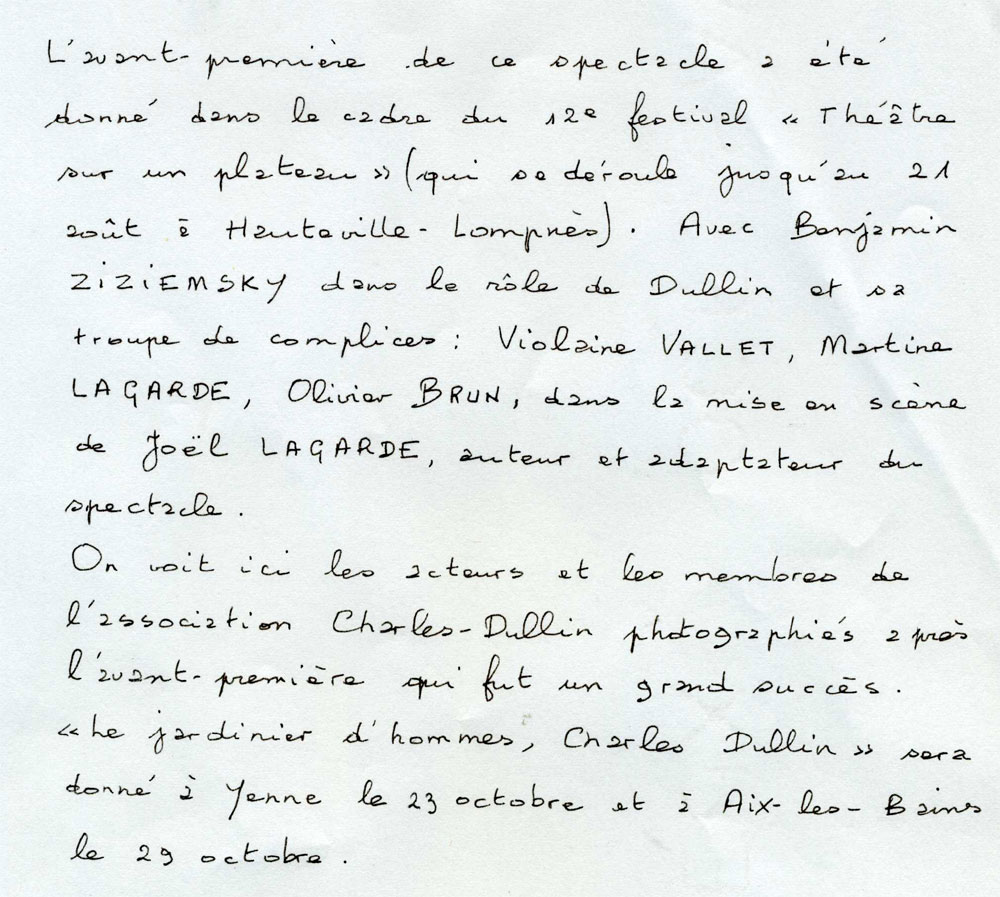 L'avant-première de ce spectacle a été
donné dans le cadre du 12e festival « Théâtre
sur un plateau » (qui se déroule jusqu'au 21
août à Hauteville-Lompnès). Avec Benjamin
ZiZiEMSKY dans le rôle de Dullin et sa
troupe de complices : Violaine VALLET, Martine
LAGARDE, Olivier BRUN, dans la mise en scène
de Joël LAGARDE, auteur et adaptateur du
spectacle.
On voit ici les acteurs et les membres de
l'association Charles-Dullin photographiés après
l'avant-première qui fut un grand succès.
« Le jardinier d'hommes, Charles Dullin » sera
donné à Yenne le 23 octobre et à Aix-les-Bains
le 29 octobre.